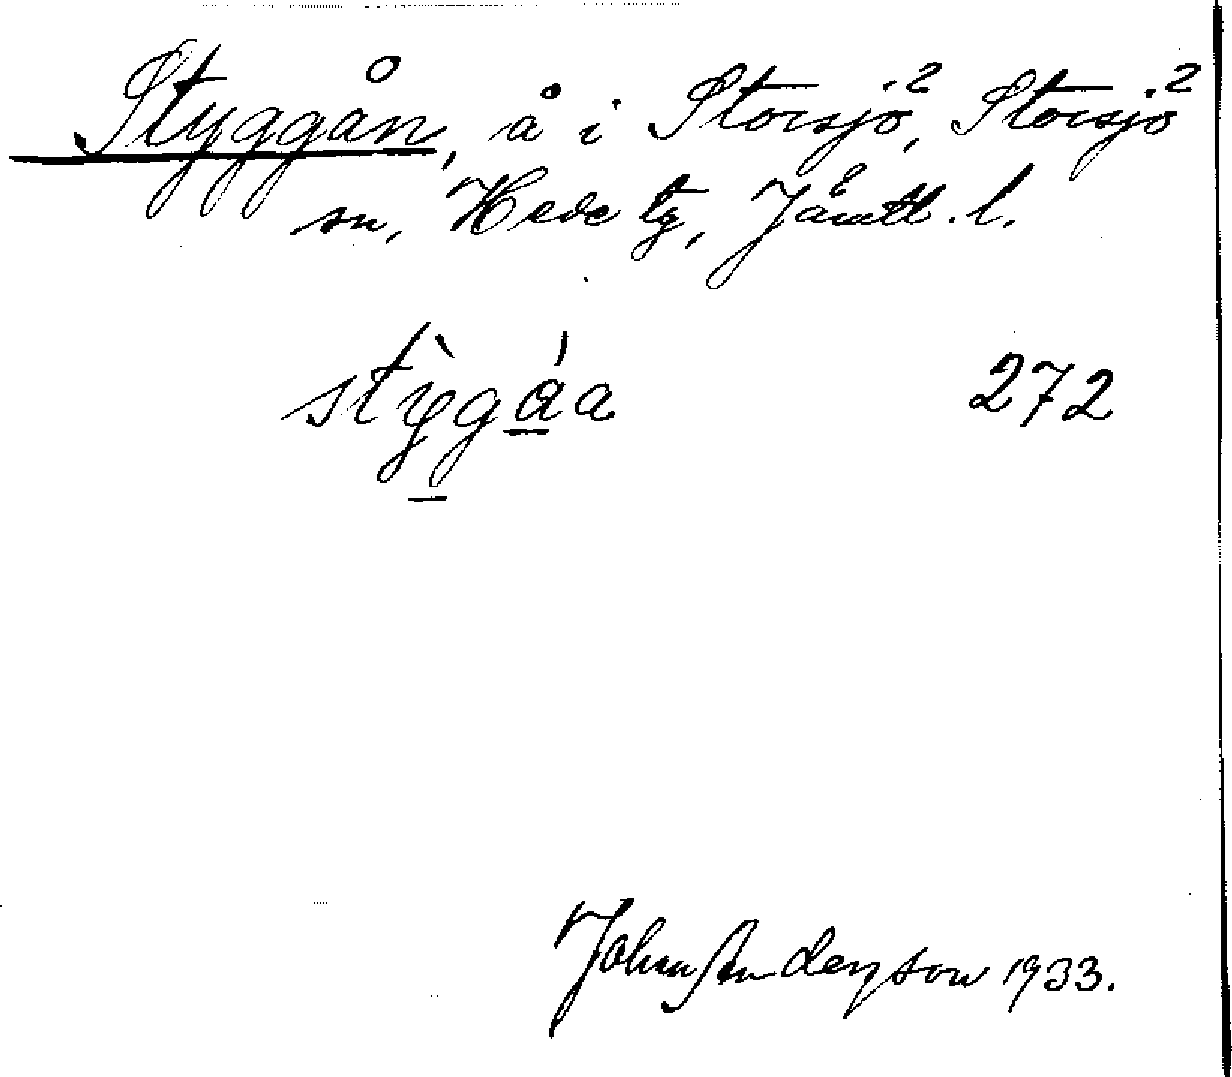 Styggån, å i Storsjö, Storsjö
sn, Hede tg, Jämtl. l.
stỳgáa 272
Johan Anderson 1933.